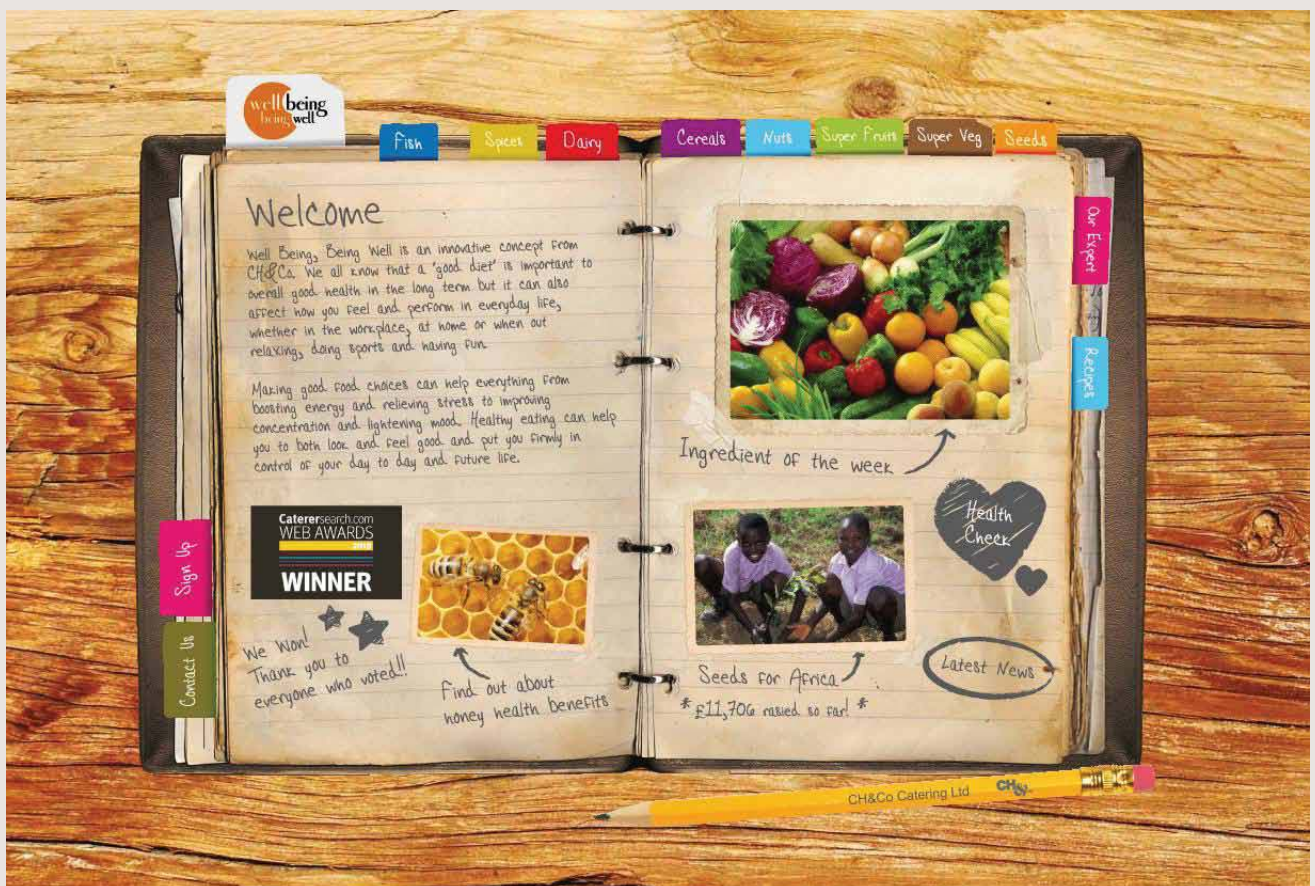 well being
being well
Fish
Spices
Dairy
Cereals
Nuts
Super Fruits
Super Veg
Seeds
Our Expert
Recipes
Sign Up
Contact Us
Welcome
Well Being, Being Well is an innovative concept from
CH&Co. We all know that a 'good diet' is important to
overall good health in the long term but it can also
affect how you feel and perform in everyday life,
whether in the workplace, at home or when out
relaxing, doing sports and having fun.
Making good food choices can help everything from
boosting energy and relieving stress to improving
concentration and lightening mood. Healthy eating can help
you to both look and feel good and put you firmly in
control of your day to day and future life.
Caterersearch.com
WEB AWARDS
WINNER
We Won!
Thank you to
everyone who voted!!
Find out about
honey health benefits
Ingredient of the week
Health
Check
Seeds for Africa
* £11,706 rasied so far! *
Latest News
CH&Co Catering Ltd
CH&Co